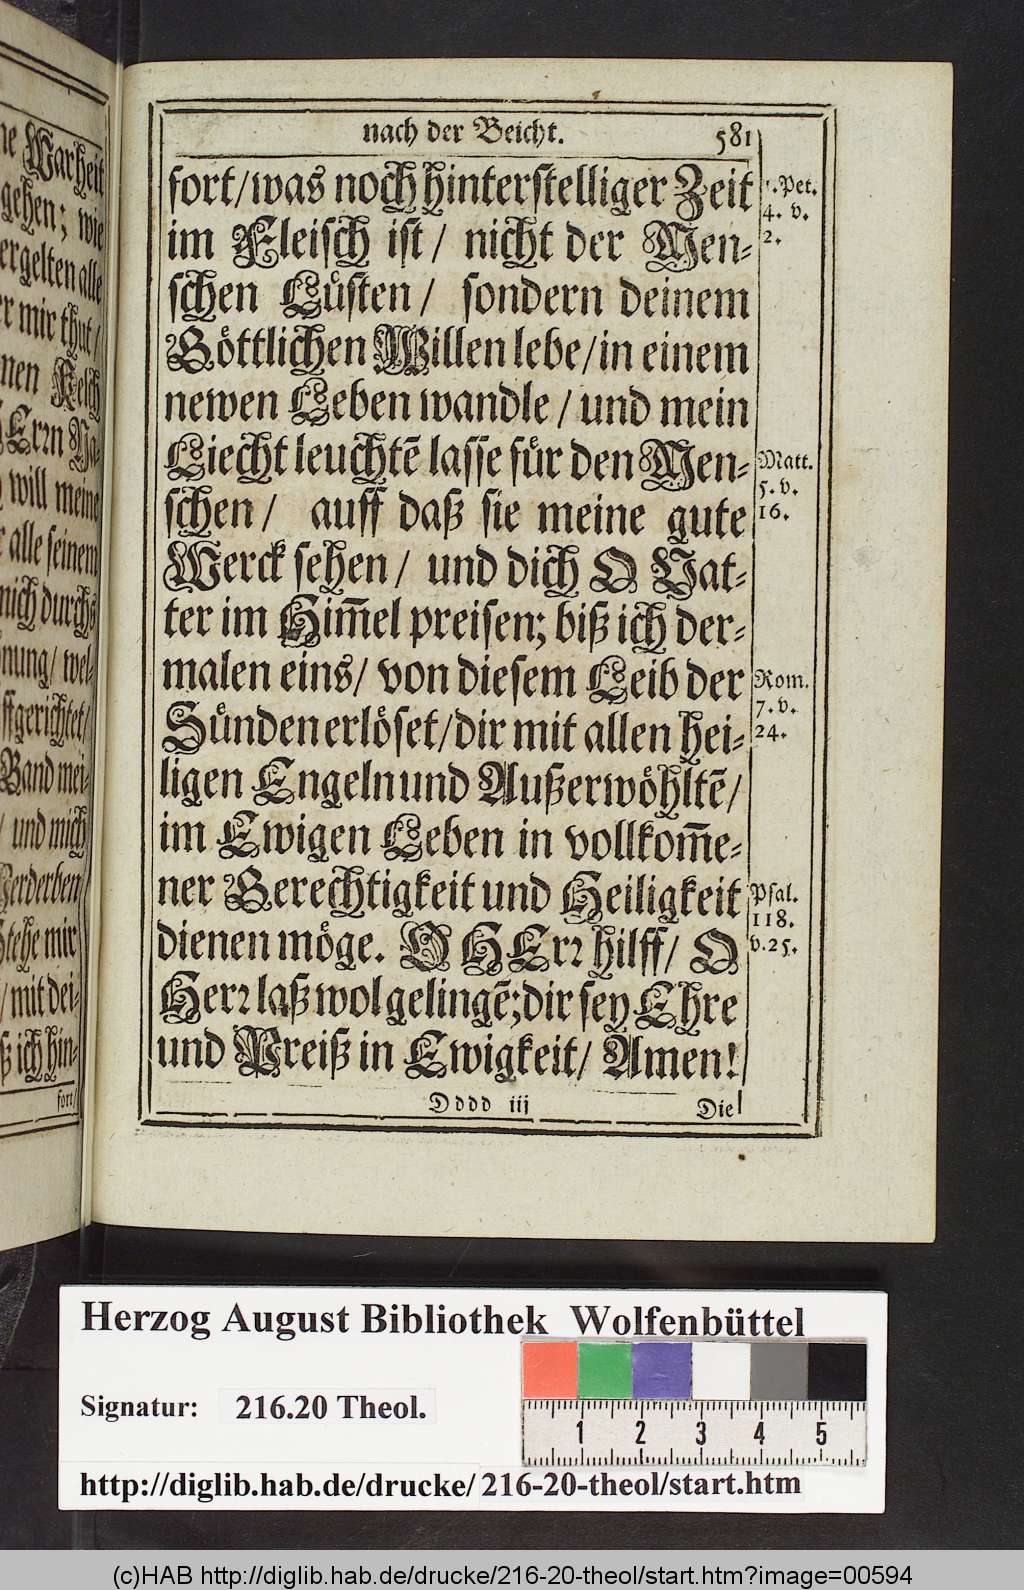 ne Warheit
gehen; wie
ergelten alle
er mir thut/
nen Kelch
HErrn Na-
will meine
alle seinem
mich durchs
nung/ wel-
ffgerichtet/
Band mei-
/ und mich
Verderben/
Stehe mir
/ mit dei-
ß ich hin-
fort/
nach der Beicht. 581
fort/ was noch hinterstelliger Zeit
im Fleisch ist/ nicht der Men-
schen Lüsten/ sondern deinem
Göttlichen Willen lebe/ in einem
newen Leben wandle/ und mein
Liecht leuchtẽ lasse für den Men-
schen/ auff daß sie meine gute
Werck sehen/ und dich O Vat-
ter im Him̃el preisen; biß ich der-
malen eins/ von diesem Leib der
Sünden erlöset/ dir mit allen hei-
ligen Engeln und Außerwöhltẽ/
im Ewigen Leben in vollkom̃e-
ner Gerechtigkeit und Heiligkeit
dienen möge. O HErr hilff/ O
Herr laß wol gelingẽ; dir sey Ehre
und Preiß in Ewigkeit/ Amen!
1. Pet.
4. v.
2.
Matt.
5. v.
16.
Rom.
7. v.
24.
Psal.
118.
v. 25.
Dddd iij Die
Herzog August Bibliothek Wolfenbüttel
Signatur: 216.20 Theol.
1 2 3 4 5
http://diglib.hab.de/drucke/216-20-theol/start.htm
(c)HAB http://diglib.hab.de/drucke/216-20-theol/start.htm?image=00594